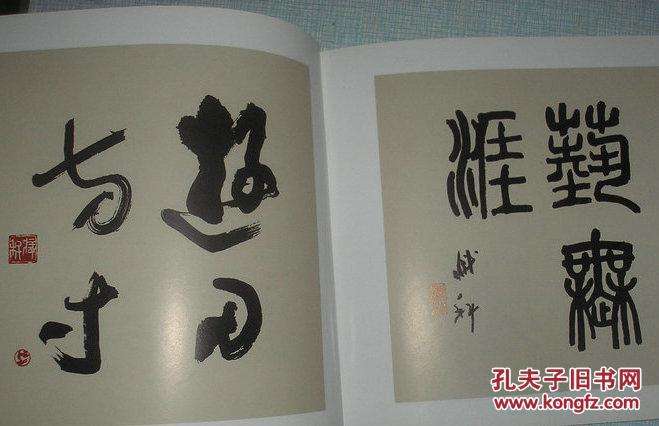 遊刃
方寸
藝無
涯
孔夫子旧书网
www.kongfz.com